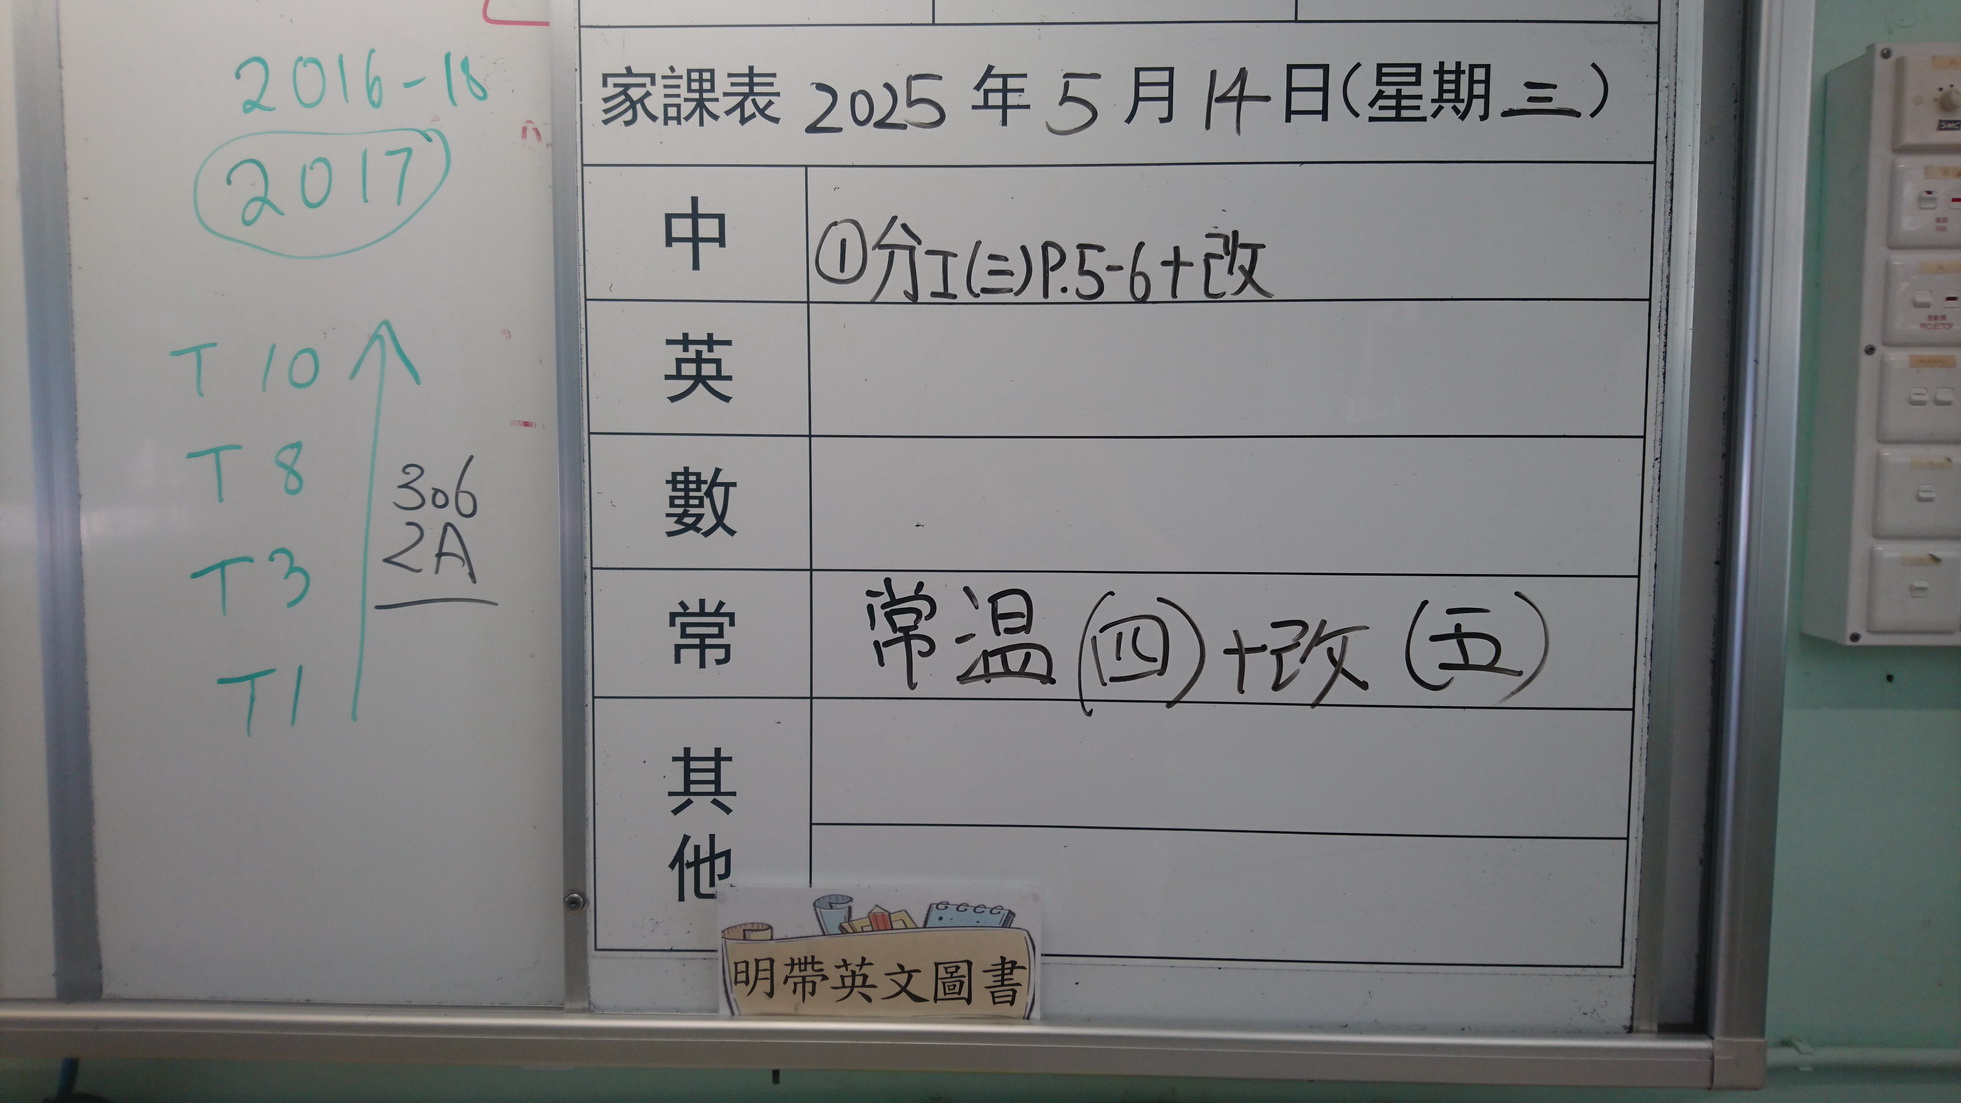 2016-18
2017
T 10
T 8
T 3
T1
306
2A
家課表 2025年5月14日(星期三)
中 ①分工(三)P.5-6+改
英
數
常 常温(四)+改(五)
其他
明帶英文圖書